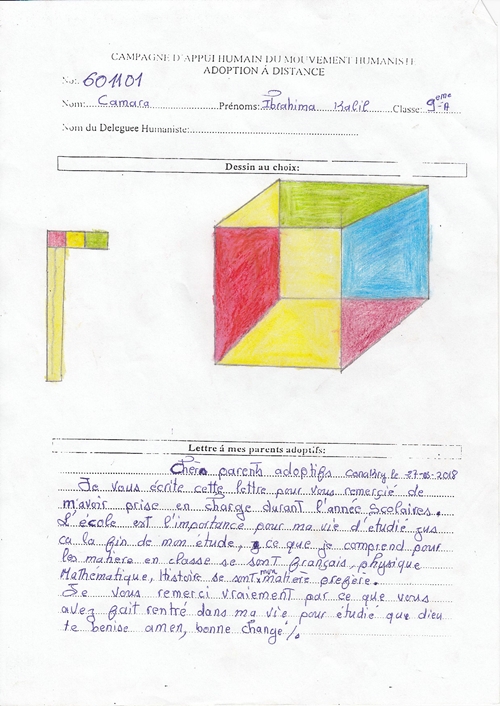 CAMPAGNE D'APPUI HUMAIN DU MOUVEMENT HUMANISTE
ADOPTION À DISTANCE
No: 601101
Nom: Camara Prénoms: Ibrahima Kalil Classe: 9eme A
Nom du Deleguee Humaniste:
Dessin au choix:
Lettre á mes parents adoptifs:
Chèr parents adoptifs conakry le 27-05-2018
Je vous écrite cette lettre pour vous remercié de
m'avoir prise en charge durant l'année Scolaires.
L'école est l'importance pour ma vie d'étudié jus
ca la fin de mon étude, ce que je comprend pour
les matiere en classe se sont français, physique
Mathématique, Histoire se sont matière préfère.
Je vous remerci vraiment par ce que vous
avez fait rentré dans ma vie pour étudié que dieu
te benise amen, bonne change ./.